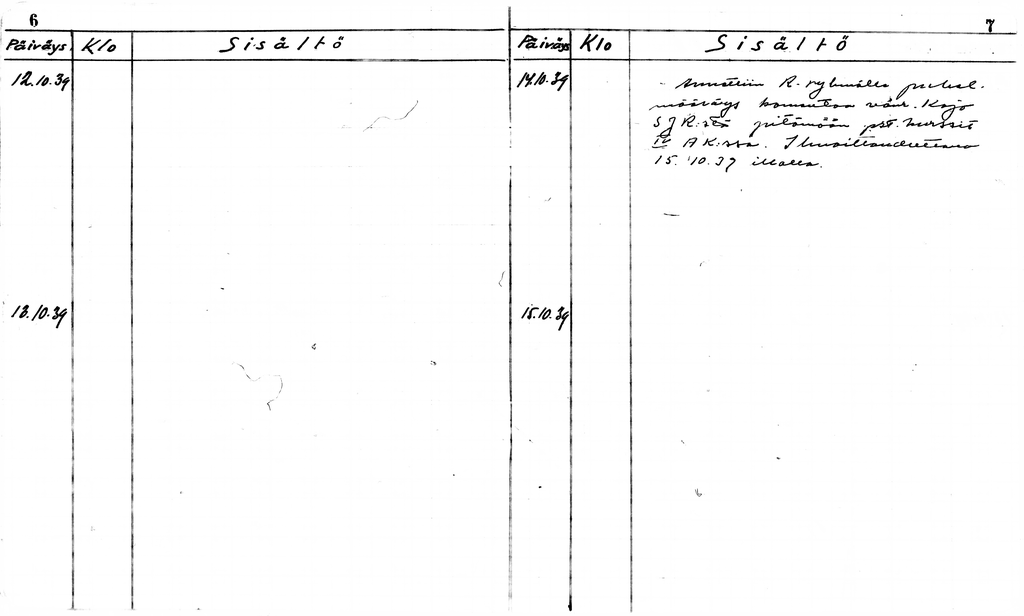 6
Päiväys Klo Sisältö
12.10.39
13.10.39
7
Päiväys Klo Sisältö
14.10.39 - Annettiin R. ryhmälle puhel.
määräys komentaa vänr. Kajo
5 J R:stä pitämään pst. kurssit
IV AK:ssa. Ilmoittauduttava
15.10.39 illalla.
15.10.39